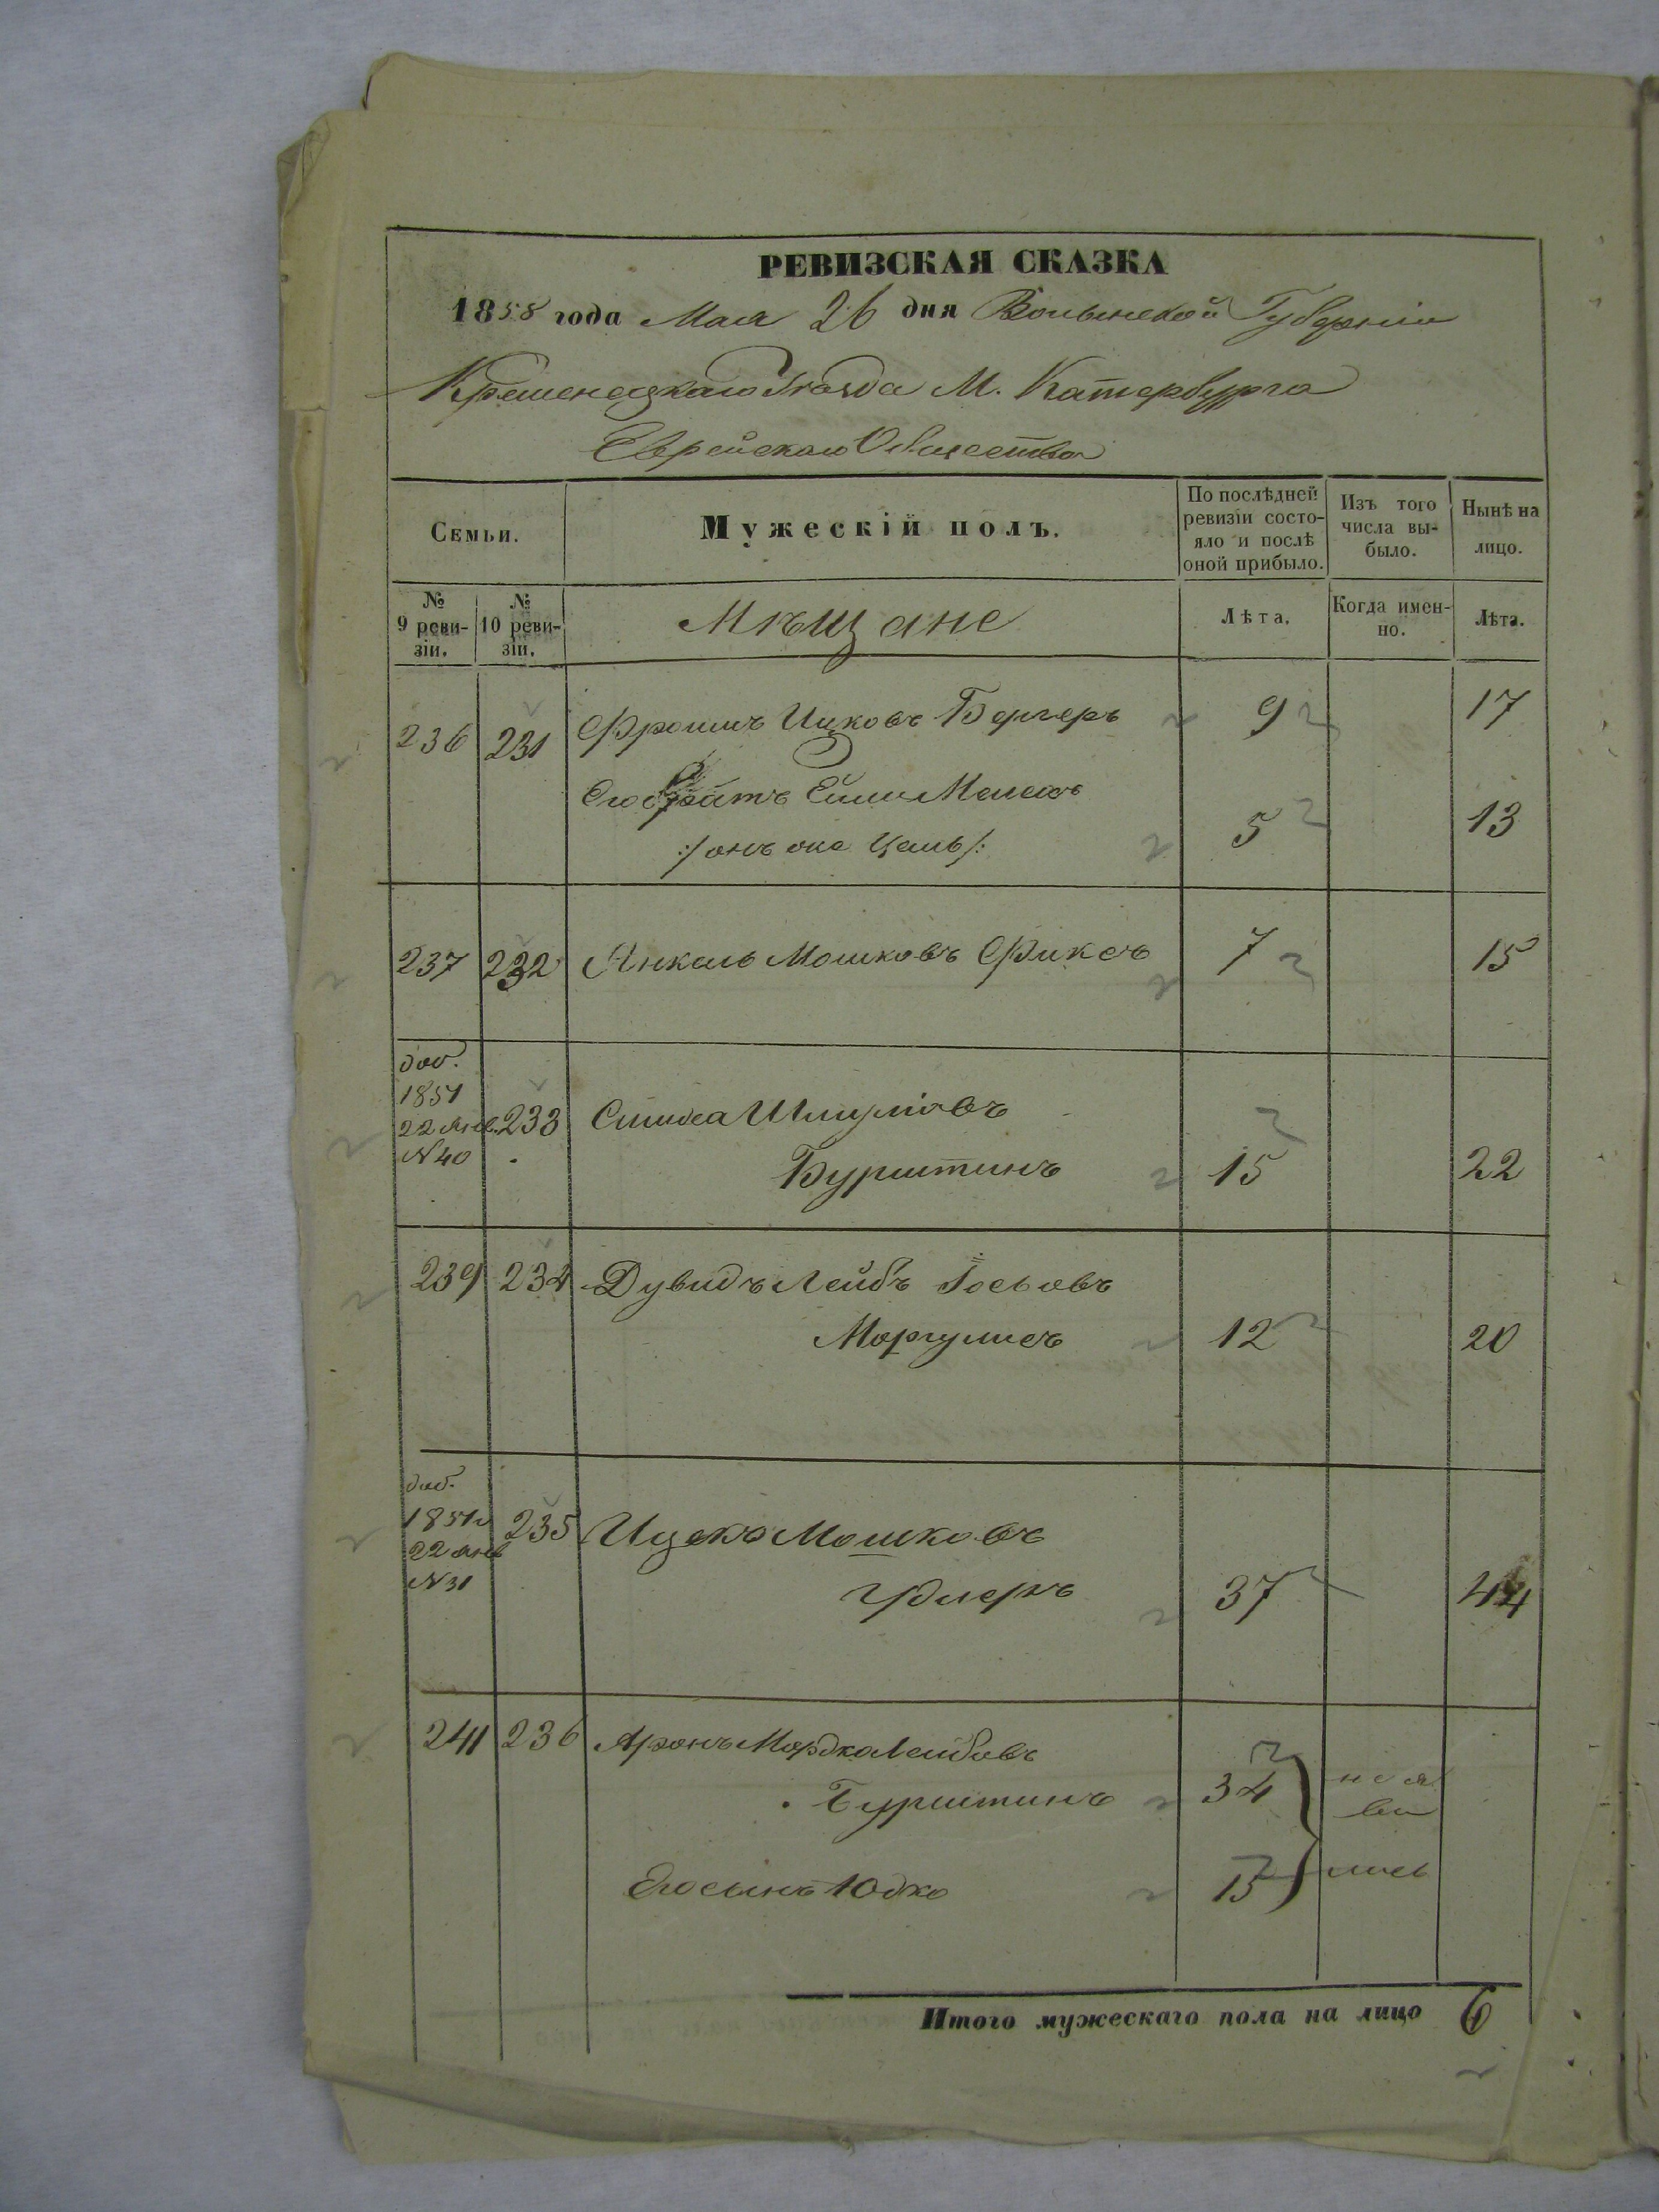 РЕВИЗСКАЯ СКАЗКА
1858 года Мая 26 дня Волынской Губерніи
Кременецкаго Уѣзда М. Катербурга
Еврейскаго Общества
Семьи.
Мужескій полъ.
По послѣдней ревизіи состояло и послѣ оной прибыло.
Изъ того числа выбыло.
Нынѣ на лицо.
№ 9 ревизіи.
№ 10 ревизіи.
Мѣщане
Лѣта.
Когда именно.
Лѣта.
236 231 Фроимъ Ицковъ Бергеръ 9 17
Его братъ
:/ онъ же /: 5 13
237 232 Янкель Мошковъ Фиксъ 7 15
доб.
1851
22 янв. 233 Симха Шмулiовъ
N 40
Бурштинъ 15 22
239 234 Дувидъ Лейбъ Іосьовъ
Моргулисъ 12 20
доб.
1851 г 235 Ицко Мошковъ
22 янв
N 31
37 44
241 236 Аронъ Мордко Лейбовъ
Бурштинъ 34 неяви
Его сынъ Юдко 15 лись
Итого мужескаго пола на лицо 6